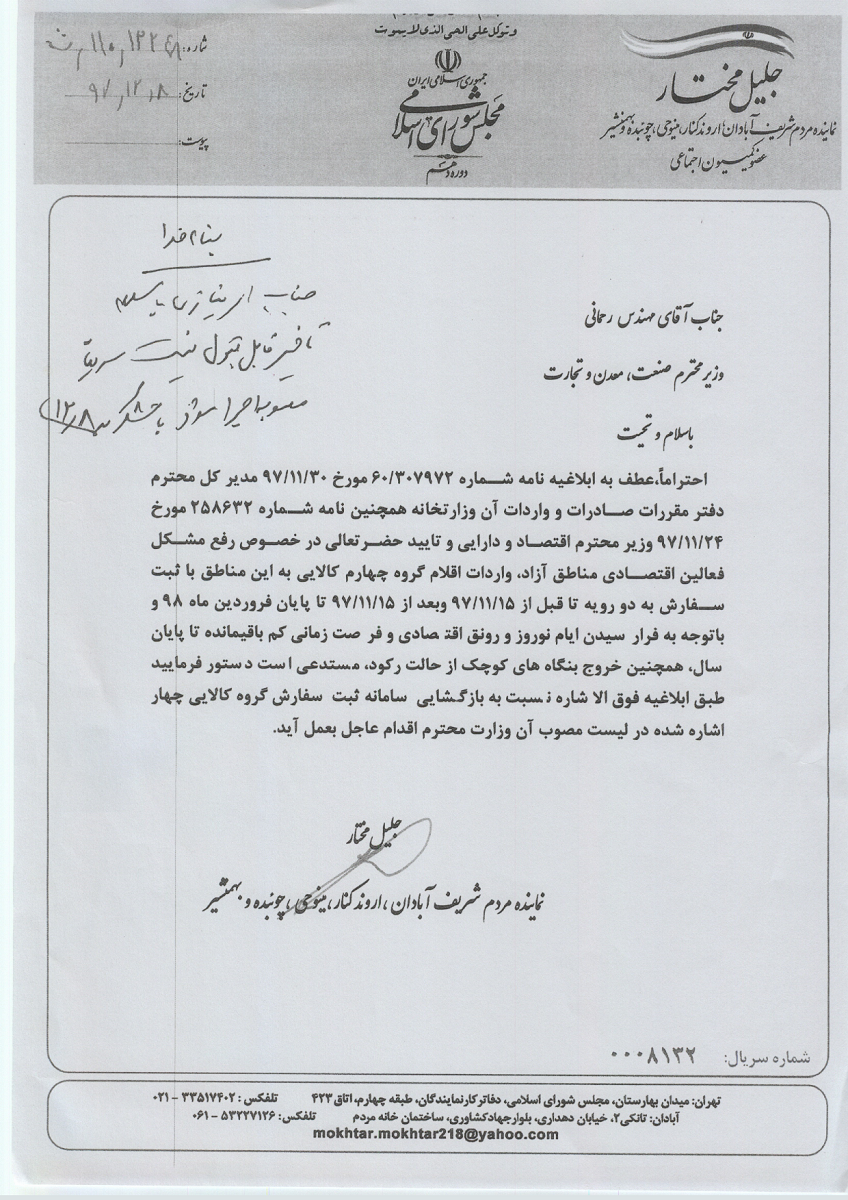 وتوکل علی الحی الذی لایموت
جمهوری اسلامی ایران
مجلس شورای اسلامی
دوره دهم
جلیل مختار
نماینده مردم شریف آبادان، اروندکنار، مینوحی، چوئبده و بهمنشیر
عضو کمیسیون اجتماعی
شماره:
تاریخ: ۹۷,۱۲,۸
پیوست:
بنام خدا
جناب
تاخیر قابل قبول نیست سریعاً
مصوبه اجرا شود با تشکر ۱۲/۸
جناب آقای مهندس رحمانی
وزیر محترم صنعت، معدن و تجارت
باسلام و تحیت
احتراماً،عطف به ابلاغیه نامه شماره ۶۰/۳۰۷۹۷۲ مورخ ۹۷/۱۱/۳۰ مدیر کل محترم
دفتر مقررات صادرات و واردات آن وزارتخانه همچنین نامه شماره ۲۵۸۶۳۲ مورخ
۹۷/۱۱/۲۴ وزیر محترم اقتصاد و دارایی و تایید حضرتعالی در خصوص رفع مشکل
فعالین اقتصادی مناطق آزاد، واردات اقلام گروه چهارم کالایی به این مناطق با ثبت
سفارش به دو رویه تا قبل از ۹۷/۱۱/۱۵ وبعد از ۹۷/۱۱/۱۵ تا پایان فروردین ماه ۹۸ و
باتوجه به فرار سیدن ایام نوروز و رونق اقتصادی و فرصت زمانی کم باقیمانده تا پایان
سال، همچنین خروج بنگاه های کوچک از حالت رکود، مستدعی است دستور فرمایید
طبق ابلاغیه فوق الاشاره نسبت به بازگشایی سامانه ثبت سفارش گروه کالایی چهار
اشاره شده در لیست مصوب آن وزارت محترم اقدام عاجل بعمل آید.
جلیل مختار
نماینده مردم شریف آبادان، اروندکنار، مینوحی، چوئبده و بهمنشیر
شماره سریال: ۰۰۰۸۱۳۲
تهران: میدان بهارستان، مجلس شورای اسلامی، دفاتر کار نمایندگان، طبقه چهارم، اتاق ۴۲۳ تلفکس: ۳۳۵۱۷۴۰۲ - ۰۲۱
آبادان: تانکی۲، خیابان دهداری، بلوار جهاد کشاوری، ساختمان خانه مردم تلفکس: ۵۳۲۲۷۱۲۶ - ۰۶۱
mokhtar.mokhtar218@yahoo.com